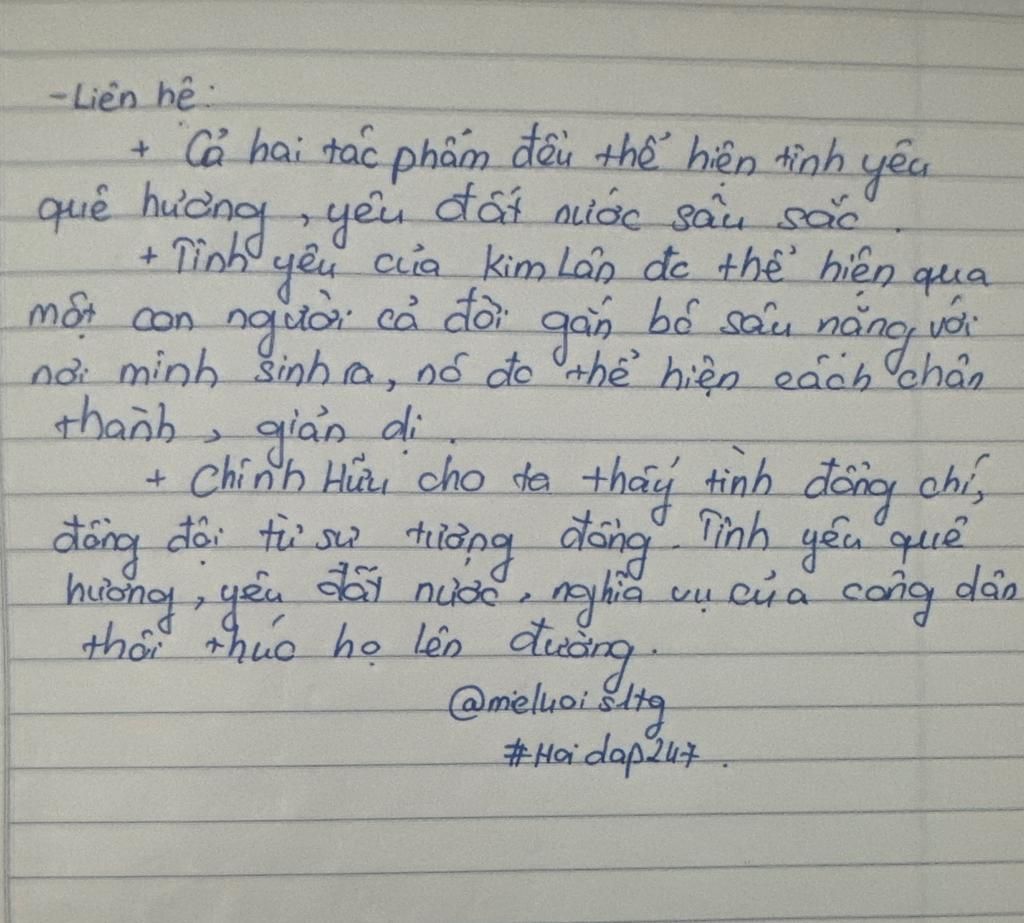 - Liên hệ:
+ Cả hai tác phẩm đều thể hiện tình yêu
quê hương, yêu đất nước sâu sắc.
+ Tình yêu của Kim Lân đc thể hiện qua
một con người cả đời gắn bó sâu nặng với
nơi mình sinh ra, nó đc thể hiện cách chân
thành, giản dị.
+ Chính Hữu cho ta thấy tình đồng chí,
đồng đội từ sự tương đồng. Tình yêu quê
hương, yêu đất nước, nghĩa vụ của công dân
thôi thúc họ lên đường.
@meluoisltg
#Hoidap247.